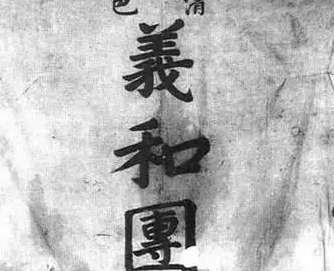 清
色
義和團